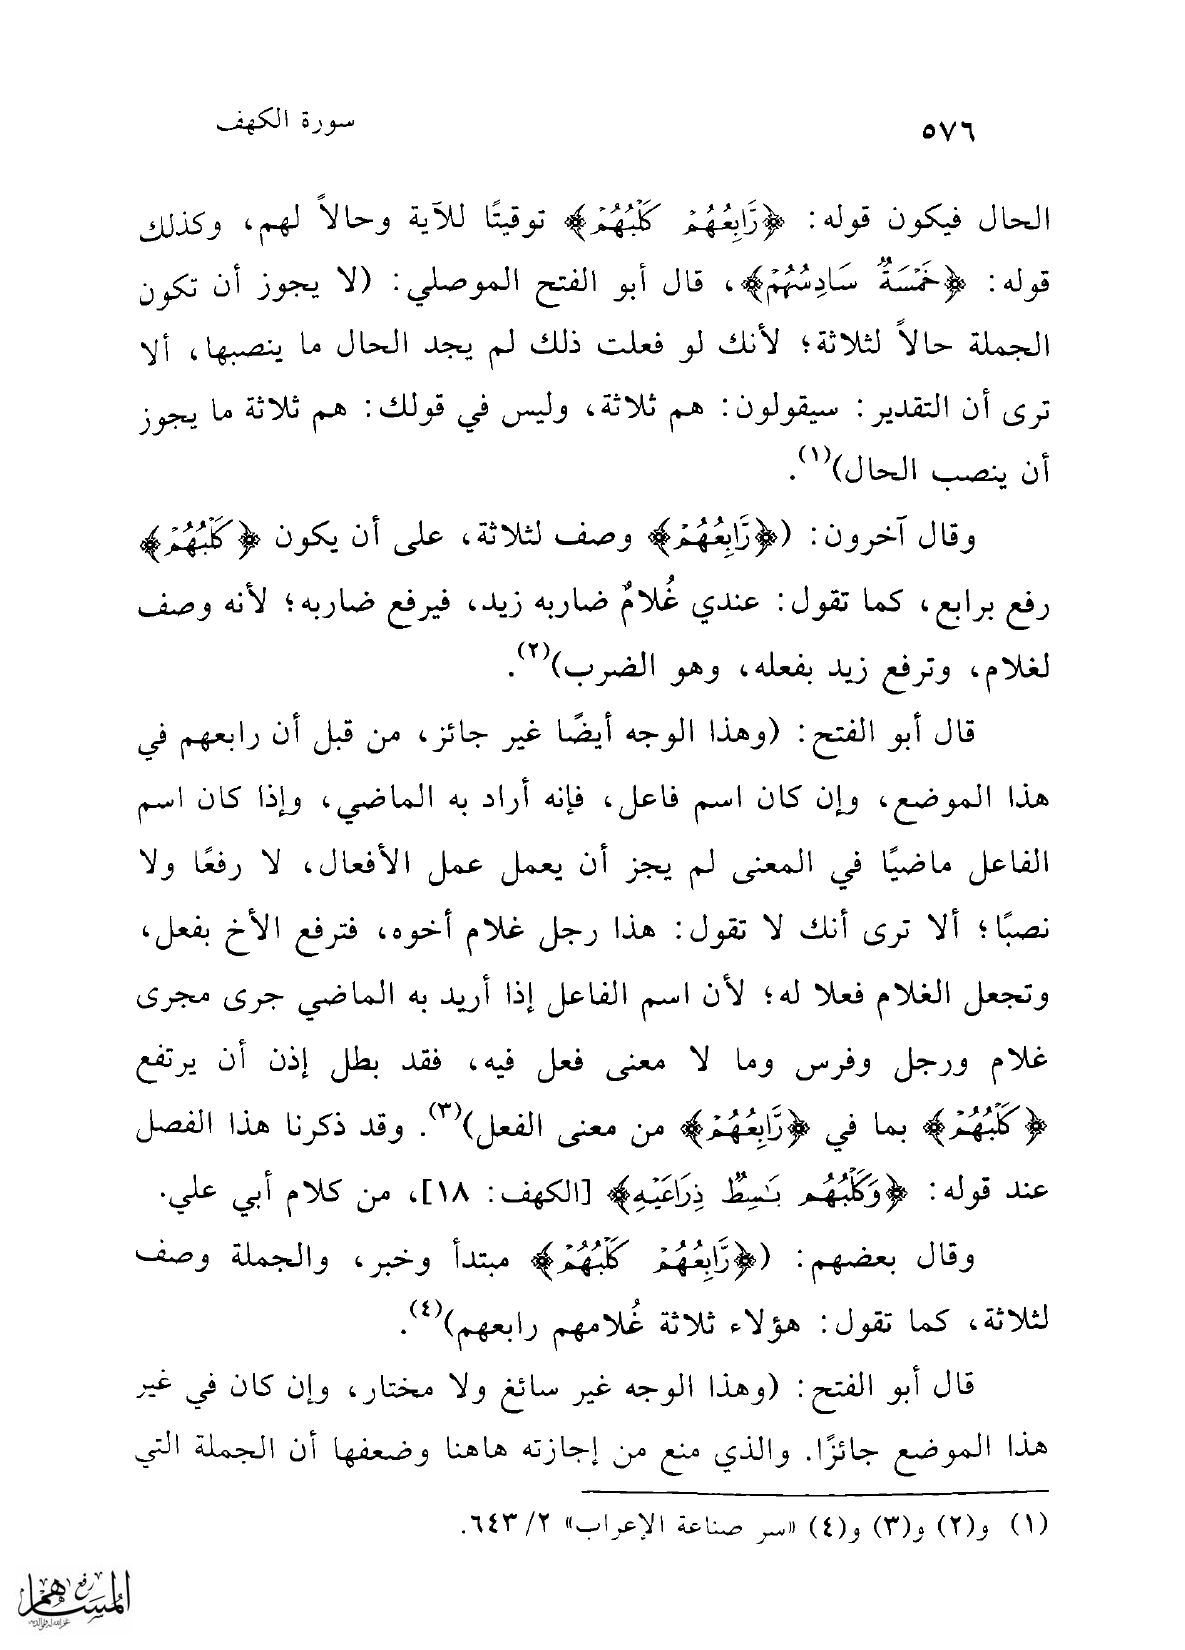 ٥٧٦ سورة الكهف
الحال فيكون قوله: ﴿رَّابِعُهُمْ كَلْبُهُمْ﴾ توقيتًا للآية وحالاً لهم، وكذلك
قوله: ﴿خَمْسَةٌ سَادِسُهُمْ﴾، قال أبو الفتح الموصلي: (لا يجوز أن تكون
الجملة حالاً لثلاثة؛ لأنك لو فعلت ذلك لم يجد الحال ما ينصبها، ألا
ترى أن التقدير: سيقولون: هم ثلاثة، وليس في قولك: هم ثلاثة ما يجوز
أن ينصب الحال)(١).
وقال آخرون: (﴿رَّابِعُهُمْ﴾ وصف لثلاثة، على أن يكون ﴿كَلْبُهُمْ﴾
رفع برابع، كما تقول: عندي غُلامٌ ضاربه زيد، فيرفع ضاربه؛ لأنه وصف
لغلام، وترفع زيد بفعله، وهو الضرب)(٢).
قال أبو الفتح: (وهذا الوجه أيضًا غير جائز، من قبل أن رابعهم في
هذا الموضع، وإن كان اسم فاعل، فإنه أراد به الماضي، وإذا كان اسم
الفاعل ماضيًا في المعنى لم يجز أن يعمل عمل الأفعال، لا رفعًا ولا
نصبًا؛ ألا ترى أنك لا تقول: هذا رجل غلام أخوه، فترفع الأخ بفعل،
وتجعل الغلام فعلا له؛ لأن اسم الفاعل إذا أريد به الماضي جرى مجرى
غلام ورجل وفرس وما لا معنى فعل فيه، فقد بطل إذن أن يرتفع
﴿كَلْبُهُمْ﴾ بما في ﴿رَّابِعُهُمْ﴾ من معنى الفعل)(٣). وقد ذكرنا هذا الفصل
عند قوله: ﴿وَكَلْبُهُم بَاسِطٌ ذِرَاعَيْهِ﴾ [الكهف: ١٨]، من كلام أبي علي.
وقال بعضهم: (﴿رَّابِعُهُمْ كَلْبُهُمْ﴾ مبتدأ وخبر، والجملة وصف
لثلاثة، كما تقول: هؤلاء ثلاثة غُلامهم رابعهم)(٤).
قال أبو الفتح: (وهذا الوجه غير سائغ ولا مختار، وإن كان في غير
هذا الموضع جائزًا. والذي منع من إجازته هاهنا وضعفها أن الجملة التي
(١) و(٢) و(٣) و(٤) «سر صناعة الإعراب» ٢/ ٦٤٣.